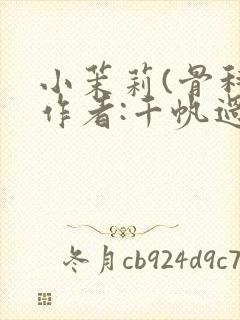 小茉莉(骨科
作者:千帆过
冬月cb924d9c7